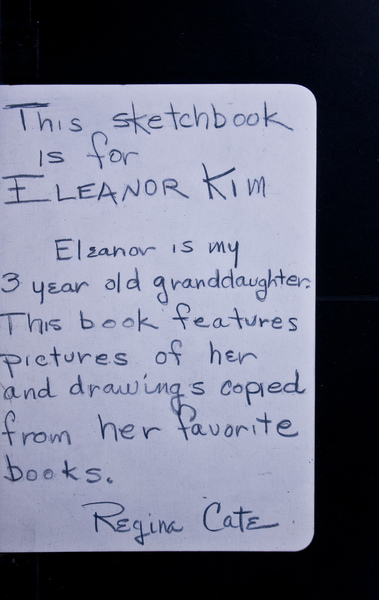 This sketchbook
is for
ELEANOR KIM
Eleanor is my
3 year old granddaughter.
This book features
pictures of her
and drawings copied
from her favorite
books.
Regina Cate